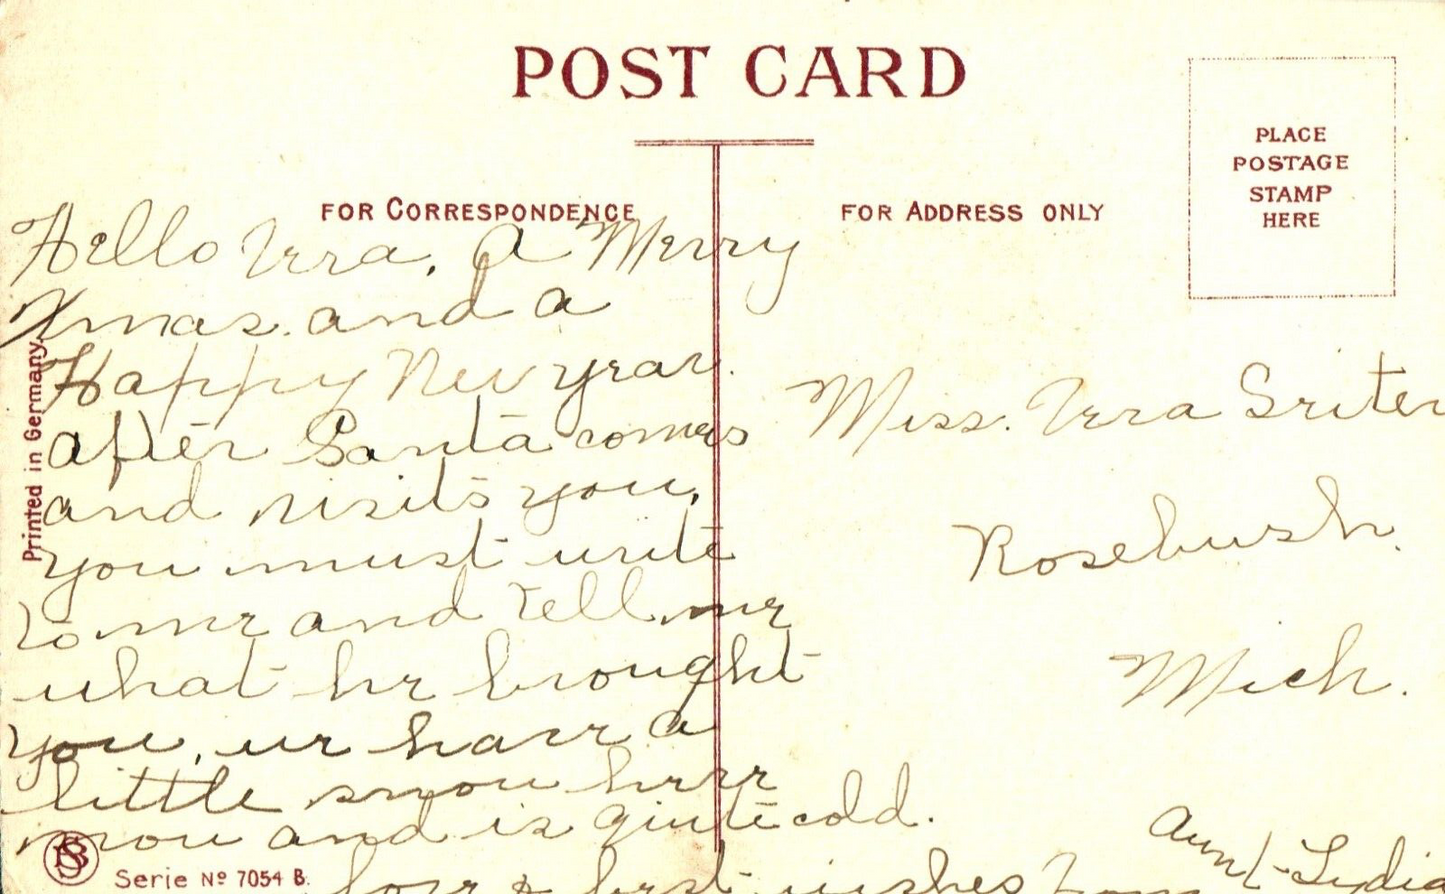 POST CARD
FOR CORRESPONDENCE
FOR ADDRESS ONLY
PLACE
POSTAGE
STAMP
HERE
Hello Vera, A Merry
Xmas. and a
Happy New year.
after Santa comes
and visits you,
you must write
to me and tell me
what he brought
you, we have a
little snow here
now and is quite cold.
love & best wishes from
Aunt Lydia
Miss. Vera Sriter
Rosebush.
Mich.
Printed in Germany
BS
Serie No 7054 B.